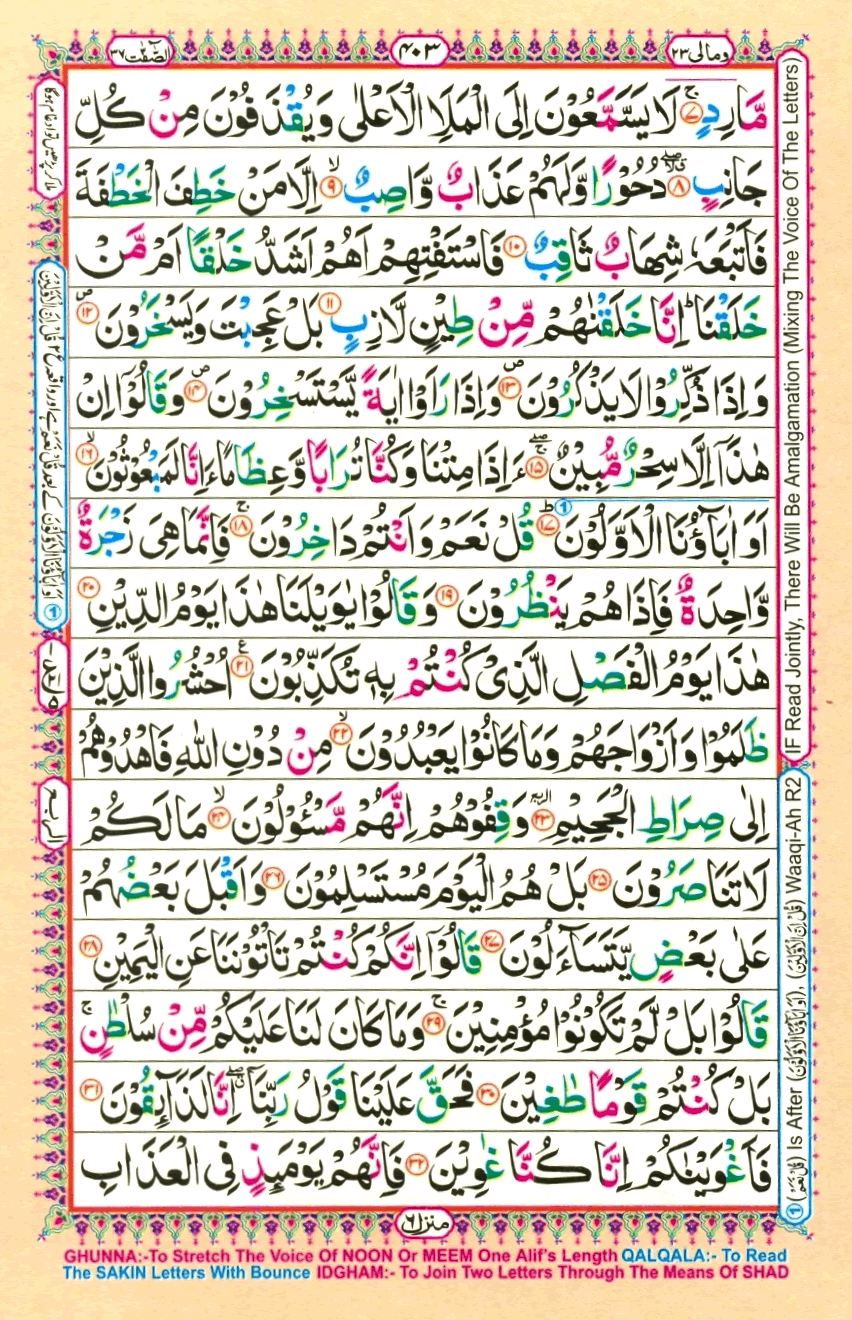 الصّٰٓفّٰت ٣٧
٤٠٣
ومالی ٢٣
مَّارِدٍ ۚ٧ لَا يَسَّمَّعُوْنَ اِلَى الْمَلَاِ الْاَعْلٰى وَيُقْذَفُوْنَ مِنْ كُلِّ
جَانِبٍ ۖ٨ دُحُوْرًا وَّلَهُمْ عَذَابٌ وَّاصِبٌ ۙ٩ اِلَّا مَنْ خَطِفَ الْخَطْفَةَ
فَاَتْبَعَهٗ شِهَابٌ ثَاقِبٌ ١٠ فَاسْتَفْتِهِمْ اَهُمْ اَشَدُّ خَلْقًا اَمْ مَّنْ
خَلَقْنَا ؕ اِنَّا خَلَقْنٰهُمْ مِّنْ طِيْنٍ لَّازِبٍ ١١ بَلْ عَجِبْتَ وَيَسْخَرُوْنَ ۪١٢
وَاِذَا ذُكِّرُوْا لَا يَذْكُرُوْنَ ۪١٣ وَاِذَا رَاَوْا اٰيَةً يَّسْتَسْخِرُوْنَ ۪١٤ وَقَالُوْٓا اِنْ
هٰذَآ اِلَّا سِحْرٌ مُّبِيْنٌ ۚۖ١٥ ءَاِذَا مِتْنَا وَكُنَّا تُرَابًا وَّعِظَامًا ءَاِنَّا لَمَبْعُوْثُوْنَ ۙ١٦
اَوَ اٰبَآؤُنَا الْاَوَّلُوْنَ ؕ١٧ قُلْ نَعَمْ وَاَنْتُمْ دَاخِرُوْنَ ۚ١٨ فَاِنَّمَا هِيَ زَجْرَةٌ
وَّاحِدَةٌ فَاِذَا هُمْ يَنْظُرُوْنَ ١٩ وَقَالُوْا يٰوَيْلَنَا هٰذَا يَوْمُ الدِّيْنِ ٢٠
هٰذَا يَوْمُ الْفَصْلِ الَّذِيْ كُنْتُمْ بِهٖ تُكَذِّبُوْنَ ٢١ ع اُحْشُرُوا الَّذِيْنَ
ظَلَمُوْا وَاَزْوَاجَهُمْ وَمَا كَانُوْا يَعْبُدُوْنَ ۙ٢٢ مِنْ دُوْنِ اللّٰهِ فَاهْدُوْهُمْ
اِلٰى صِرَاطِ الْجَحِيْمِ ٢٣ وَقِفُوْهُمْ اِنَّهُمْ مَّسْـُٔوْلُوْنَ ۙ٢٤ مَا لَكُمْ
لَا تَنَاصَرُوْنَ ٢٥ بَلْ هُمُ الْيَوْمَ مُسْتَسْلِمُوْنَ ٢٦ وَاَقْبَلَ بَعْضُهُمْ
عَلٰى بَعْضٍ يَّتَسَآءَلُوْنَ ٢٧ قَالُوْٓا اِنَّكُمْ كُنْتُمْ تَاْتُوْنَنَا عَنِ الْيَمِيْنِ ٢٨
قَالُوْا بَلْ لَّمْ تَكُوْنُوْا مُؤْمِنِيْنَ ۚ٢٩ وَمَا كَانَ لَنَا عَلَيْكُمْ مِّنْ سُلْطٰنٍ ۚ
بَلْ كُنْتُمْ قَوْمًا طٰغِيْنَ ٣٠ فَحَقَّ عَلَيْنَا قَوْلُ رَبِّنَآ ۖ اِنَّا لَذَآئِقُوْنَ ٣١
فَاَغْوَيْنٰكُمْ اِنَّا كُنَّا غٰوِيْنَ ٣٢ فَاِنَّهُمْ يَوْمَئِذٍ فِي الْعَذَابِ
منزل ٦
IF Read Jointly, There Will Be Amalgamation (Mixing The Voice Of The Letters)
① (قُلْ نَعَمْ) Is After (اَوَاٰبَآؤُنَا الْاَوَّلُوْنَ), (قُلْ اِنَّ الْاَوَّلِيْنَ) Waaqi-Ah R2
الربع
GHUNNA:-To Stretch The Voice Of NOON Or MEEM One Alif's Length QALQALA:- To Read
The SAKIN Letters With Bounce IDGHAM:- To Join Two Letters Through The Means Of SHAD